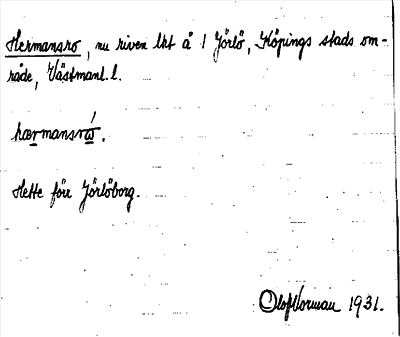 Hermansro, nu riven lht å 1 Jörlö, Köpings stads om-
råde, Västmanl. l.
hærmansrώ.
Hette förr Jörlöborg.
Olof Norman 1931.